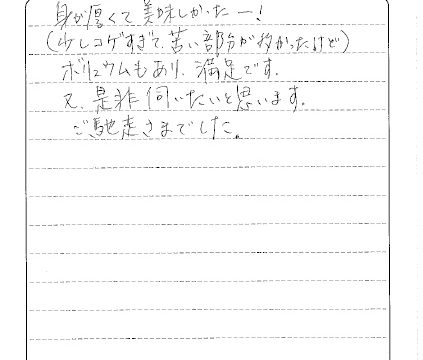 身が厚くて美味しかったー!
(少しコゲすぎて、苦い部分が多かったけど)
ボリュウムもあり、満足です。
又、是非伺いたいと思います。
ご馳走さまでした。